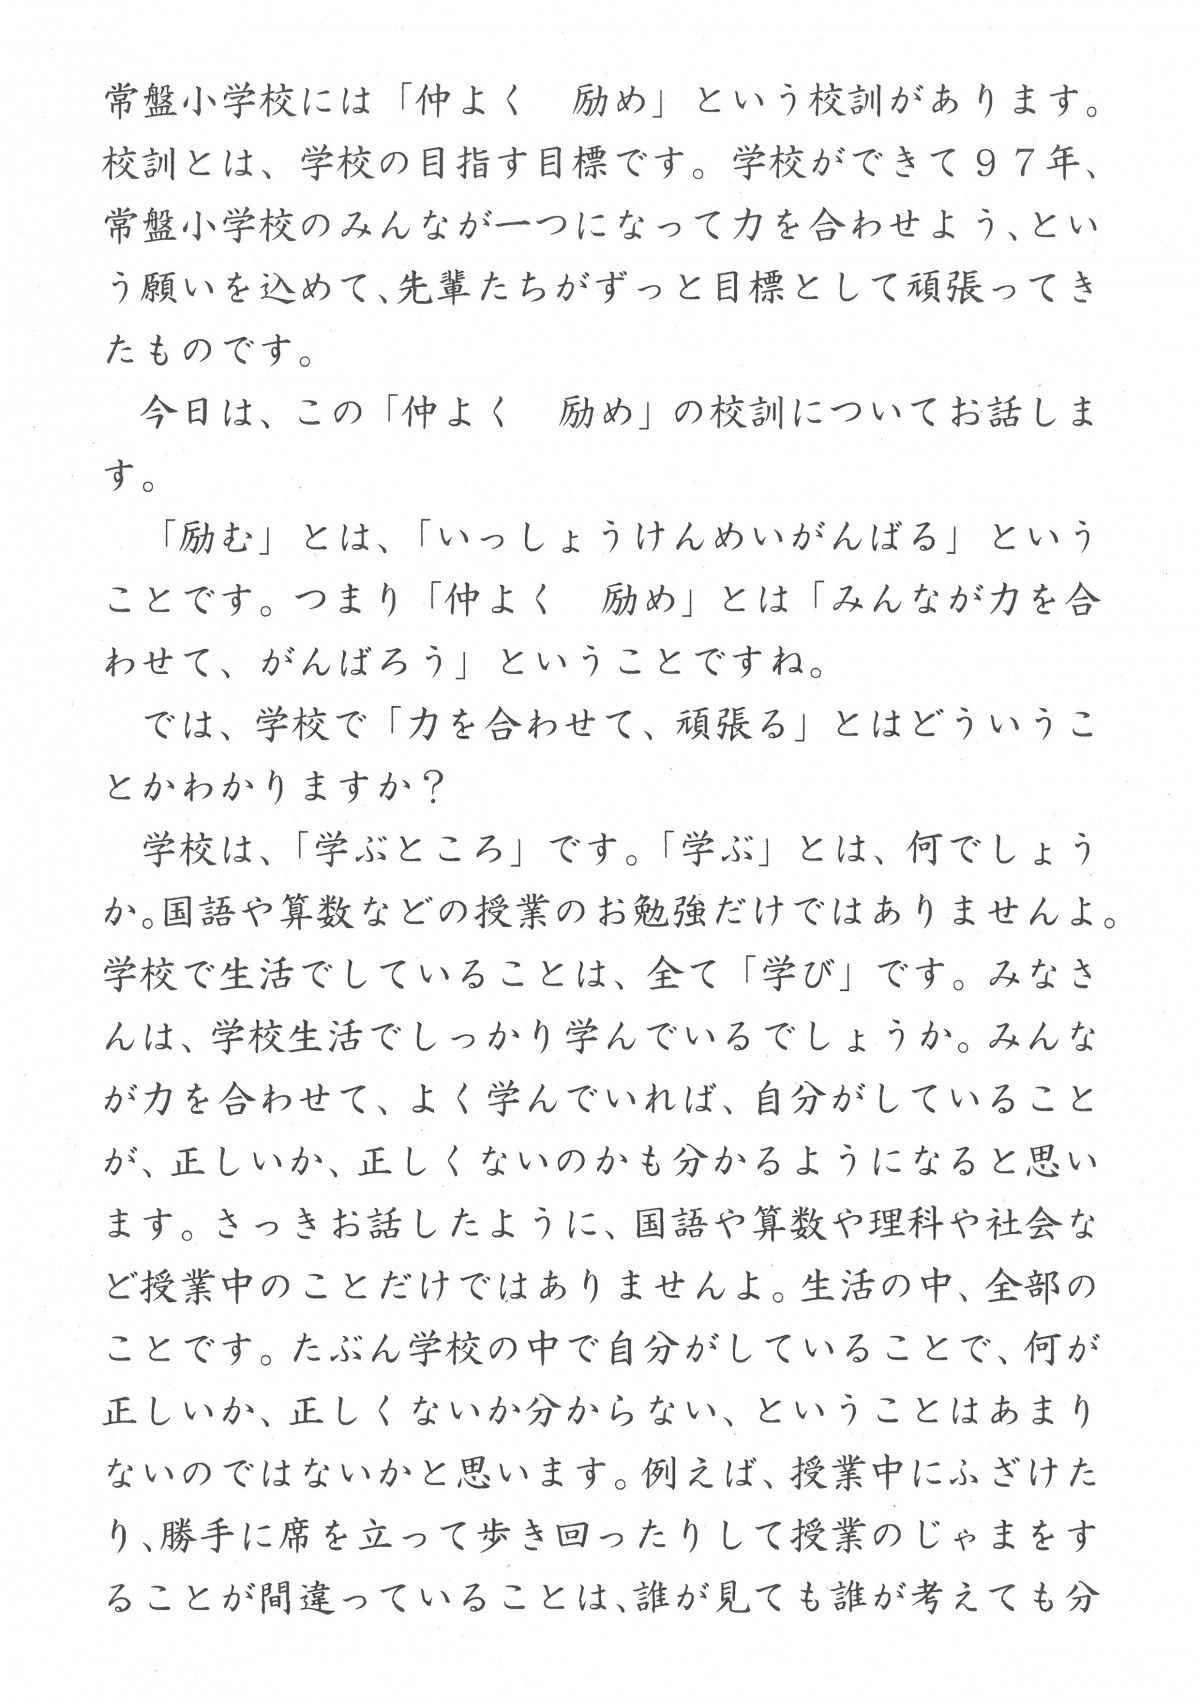 常盤小学校には「仲よく　励め」という校訓があります。
校訓とは、学校の目指す目標です。学校ができて９７年、
常盤小学校のみんなが一つになって力を合わせよう、とい
う願いを込めて、先輩たちがずっと目標として頑張ってき
たものです。
　今日は、この「仲よく　励め」の校訓についてお話しま
す。
　「励む」とは、「いっしょうけんめいがんばる」という
ことです。つまり「仲よく　励め」とは「みんなが力を合
わせて、がんばろう」ということですね。
　では、学校で「力を合わせて、頑張る」とはどういうこ
とかわかりますか？
　学校は、「学ぶところ」です。「学ぶ」とは、何でしょう
か。国語や算数などの授業のお勉強だけではありませんよ。
学校で生活でしていることは、全て「学び」です。みなさ
んは、学校生活でしっかり学んでいるでしょうか。みんな
が力を合わせて、よく学んでいれば、自分がしていること
が、正しいか、正しくないのかも分かるようになると思い
ます。さっきお話したように、国語や算数や理科や社会な
ど授業中のことだけではありませんよ。生活の中、全部の
ことです。たぶん学校の中で自分がしていることで、何が
正しいか、正しくないか分からない、ということはあまり
ないのではないかと思います。例えば、授業中にふざけた
り、勝手に席を立って歩き回ったりして授業のじゃまをす
ることが間違っていることは、誰が見ても誰が考えても分